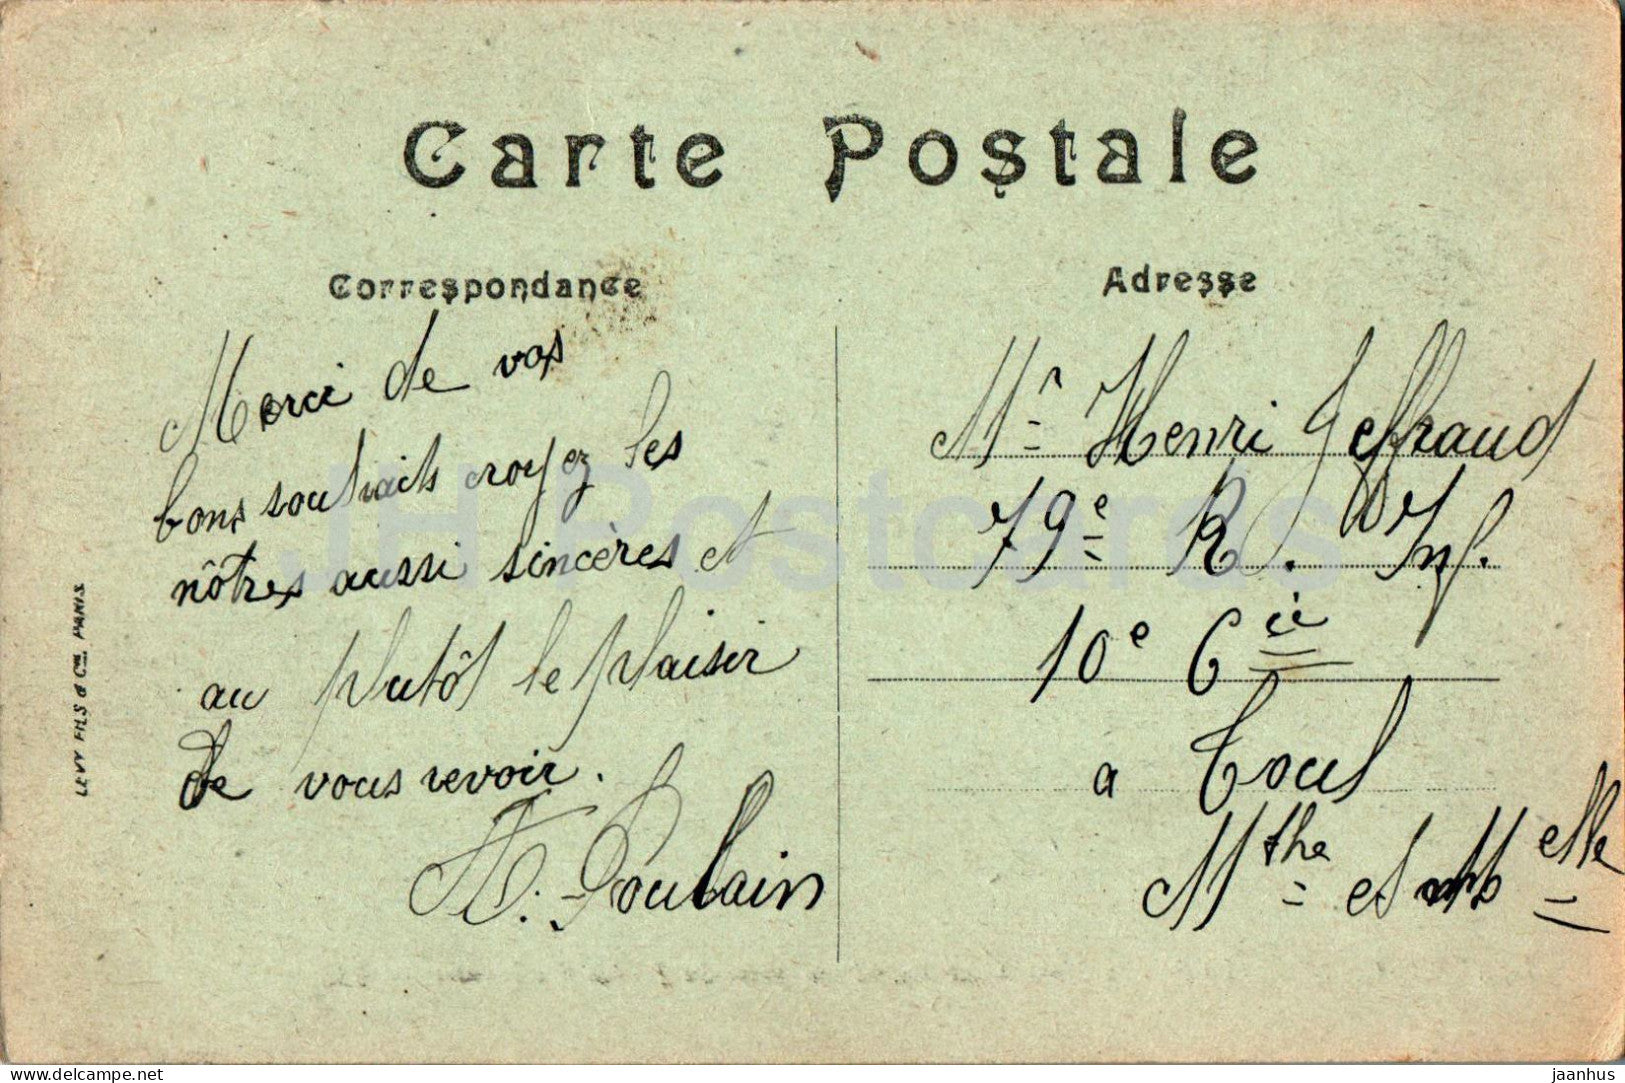 Carte Postale
Correspondance
Merci de vos
bons souhaits croyez les
nôtres aussi sincères et
au plutôt le plaisir
de vous revoir.
H. Poulain
Adresse
Mr Henri Jeffraud
79e R. d'Inf.
10e Cie
a Toul
Mthe et Melle
LEVY FILS & Cie. PARIS
JH Postcards
delcampe.net
jaanhus